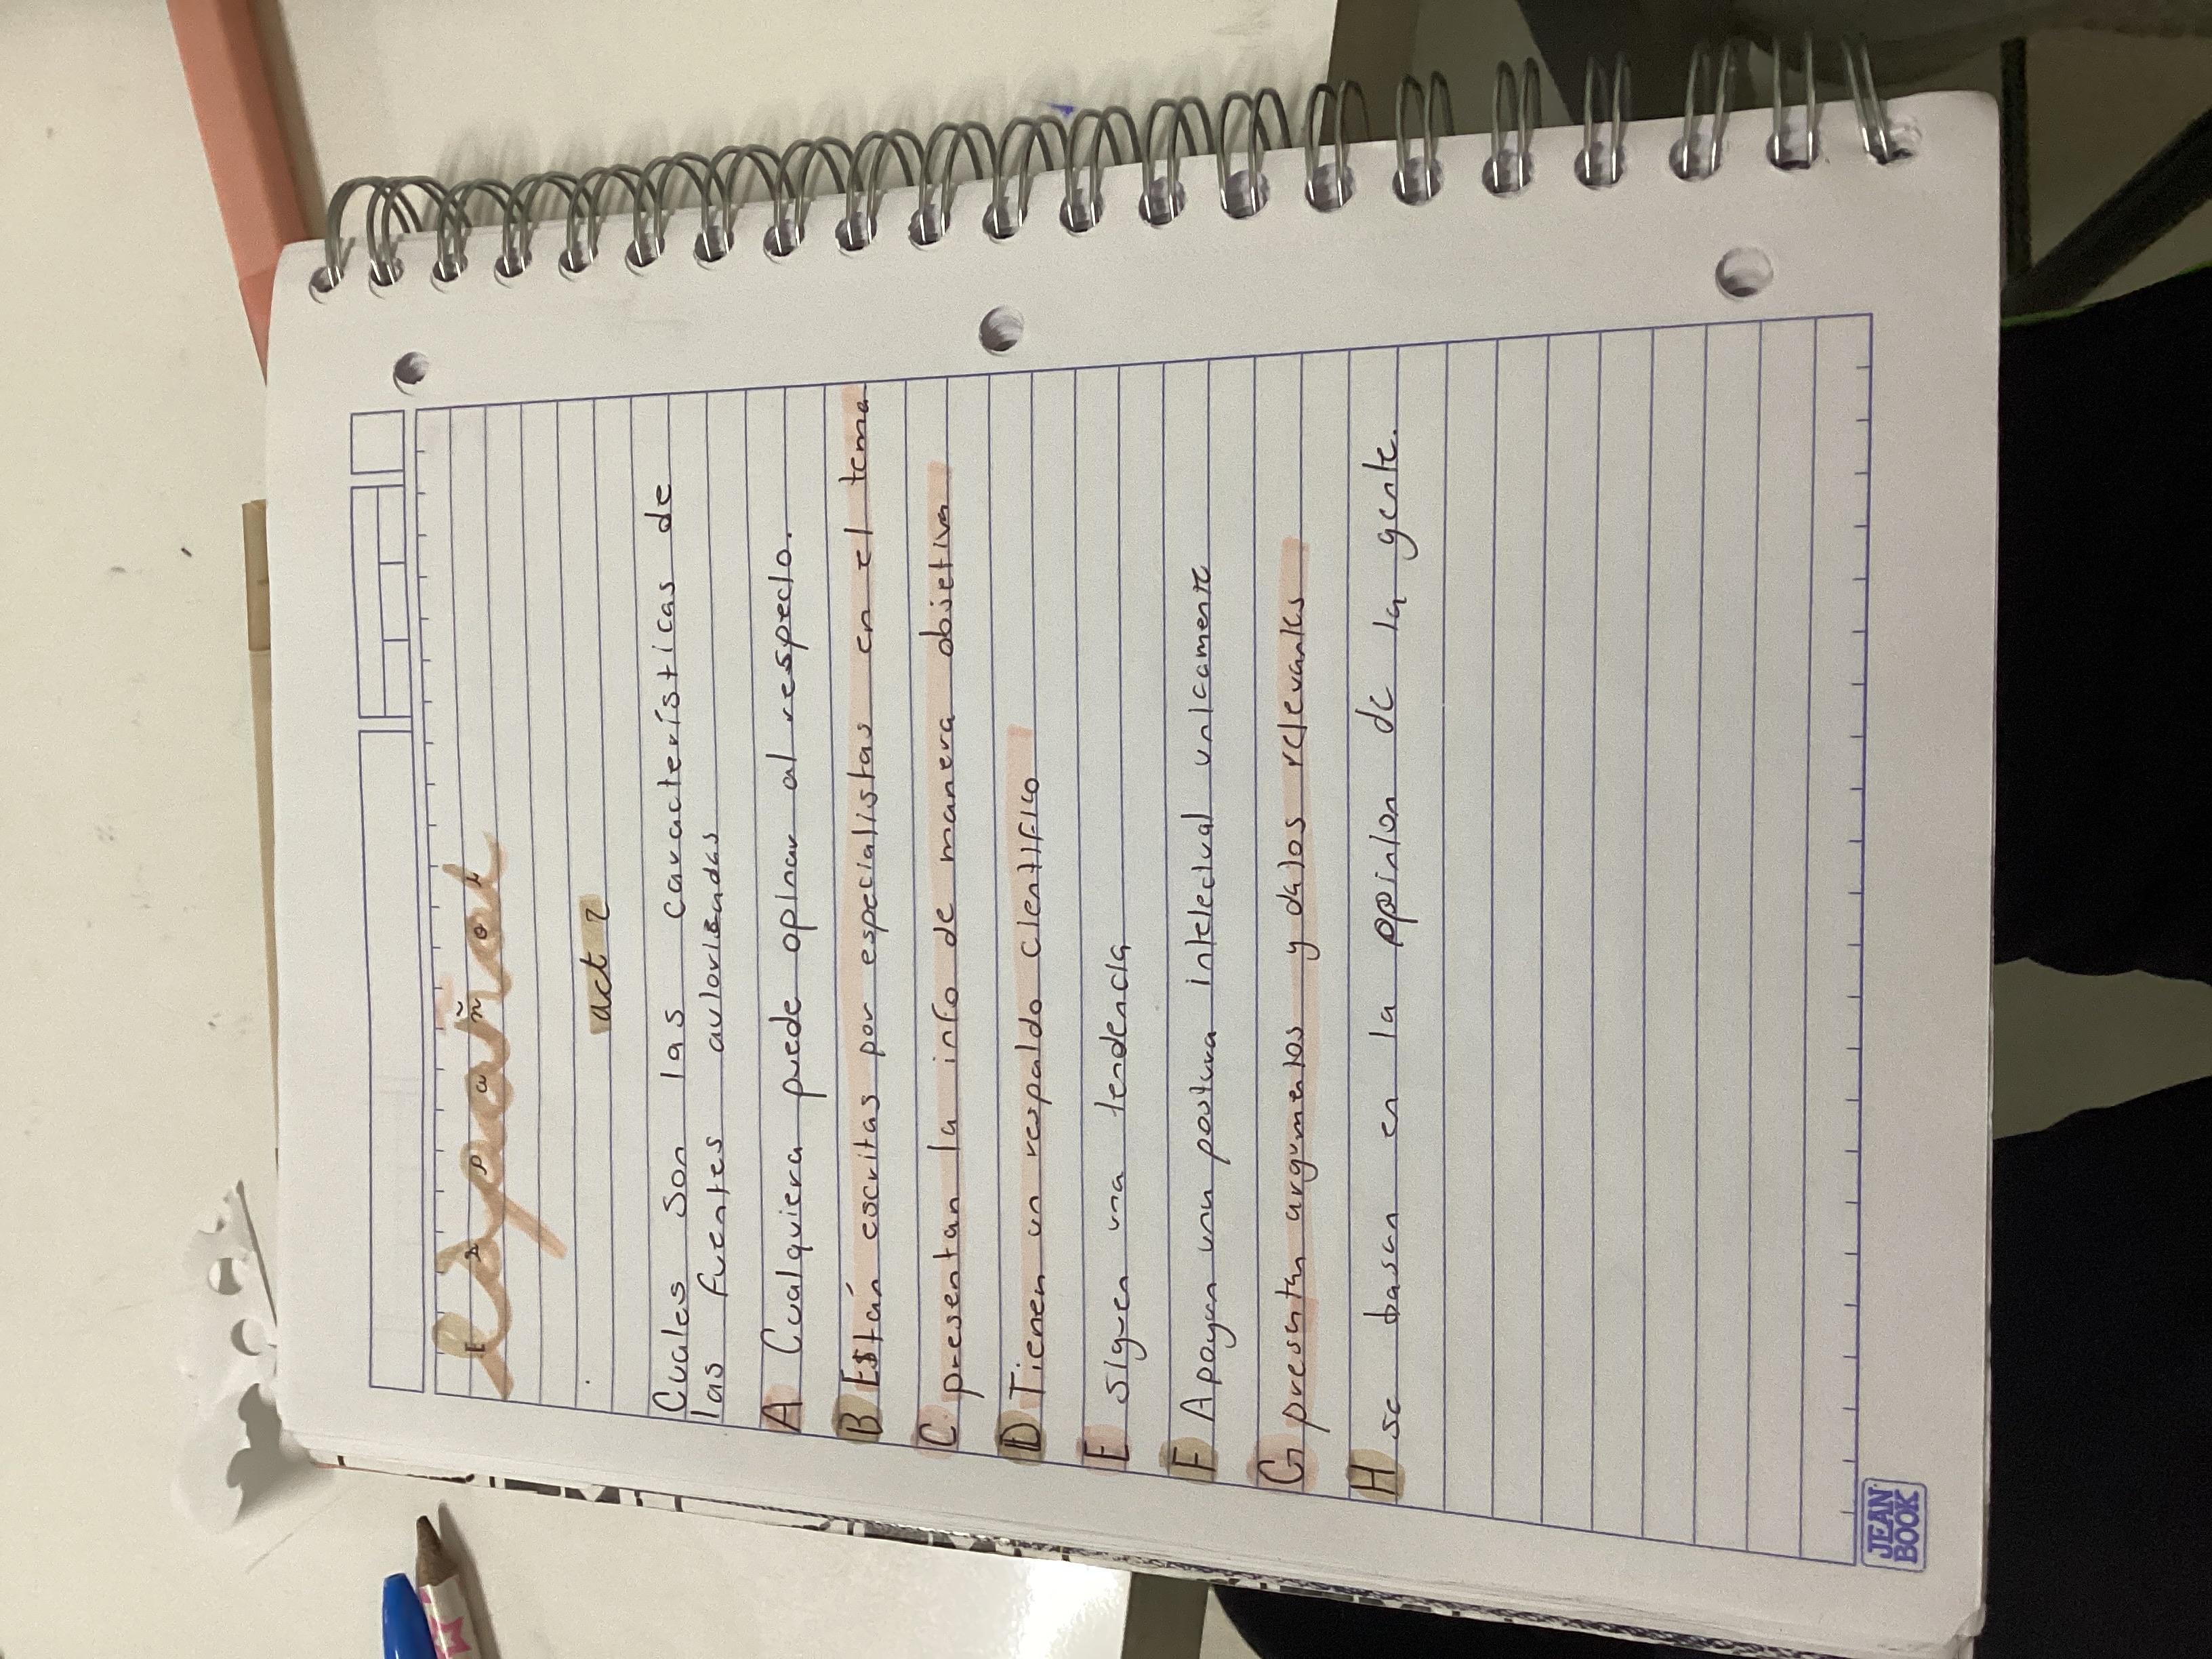 Español
E s p a ñ o l
act 2
Cuales son las características de
las fuentes autorisadas
A Cualquiera puede opinar al respecto.
B Están escritas por especialistas en el tema
C presentan la info de manera objetiva
D Tienen un respaldo cientifico
E siguen una tendencia
F Apoyan una postura intelectual unicamente
G presentan argumentos y datos relevantes
H se basan en la opinion de la gente.
JEAN
BOOK